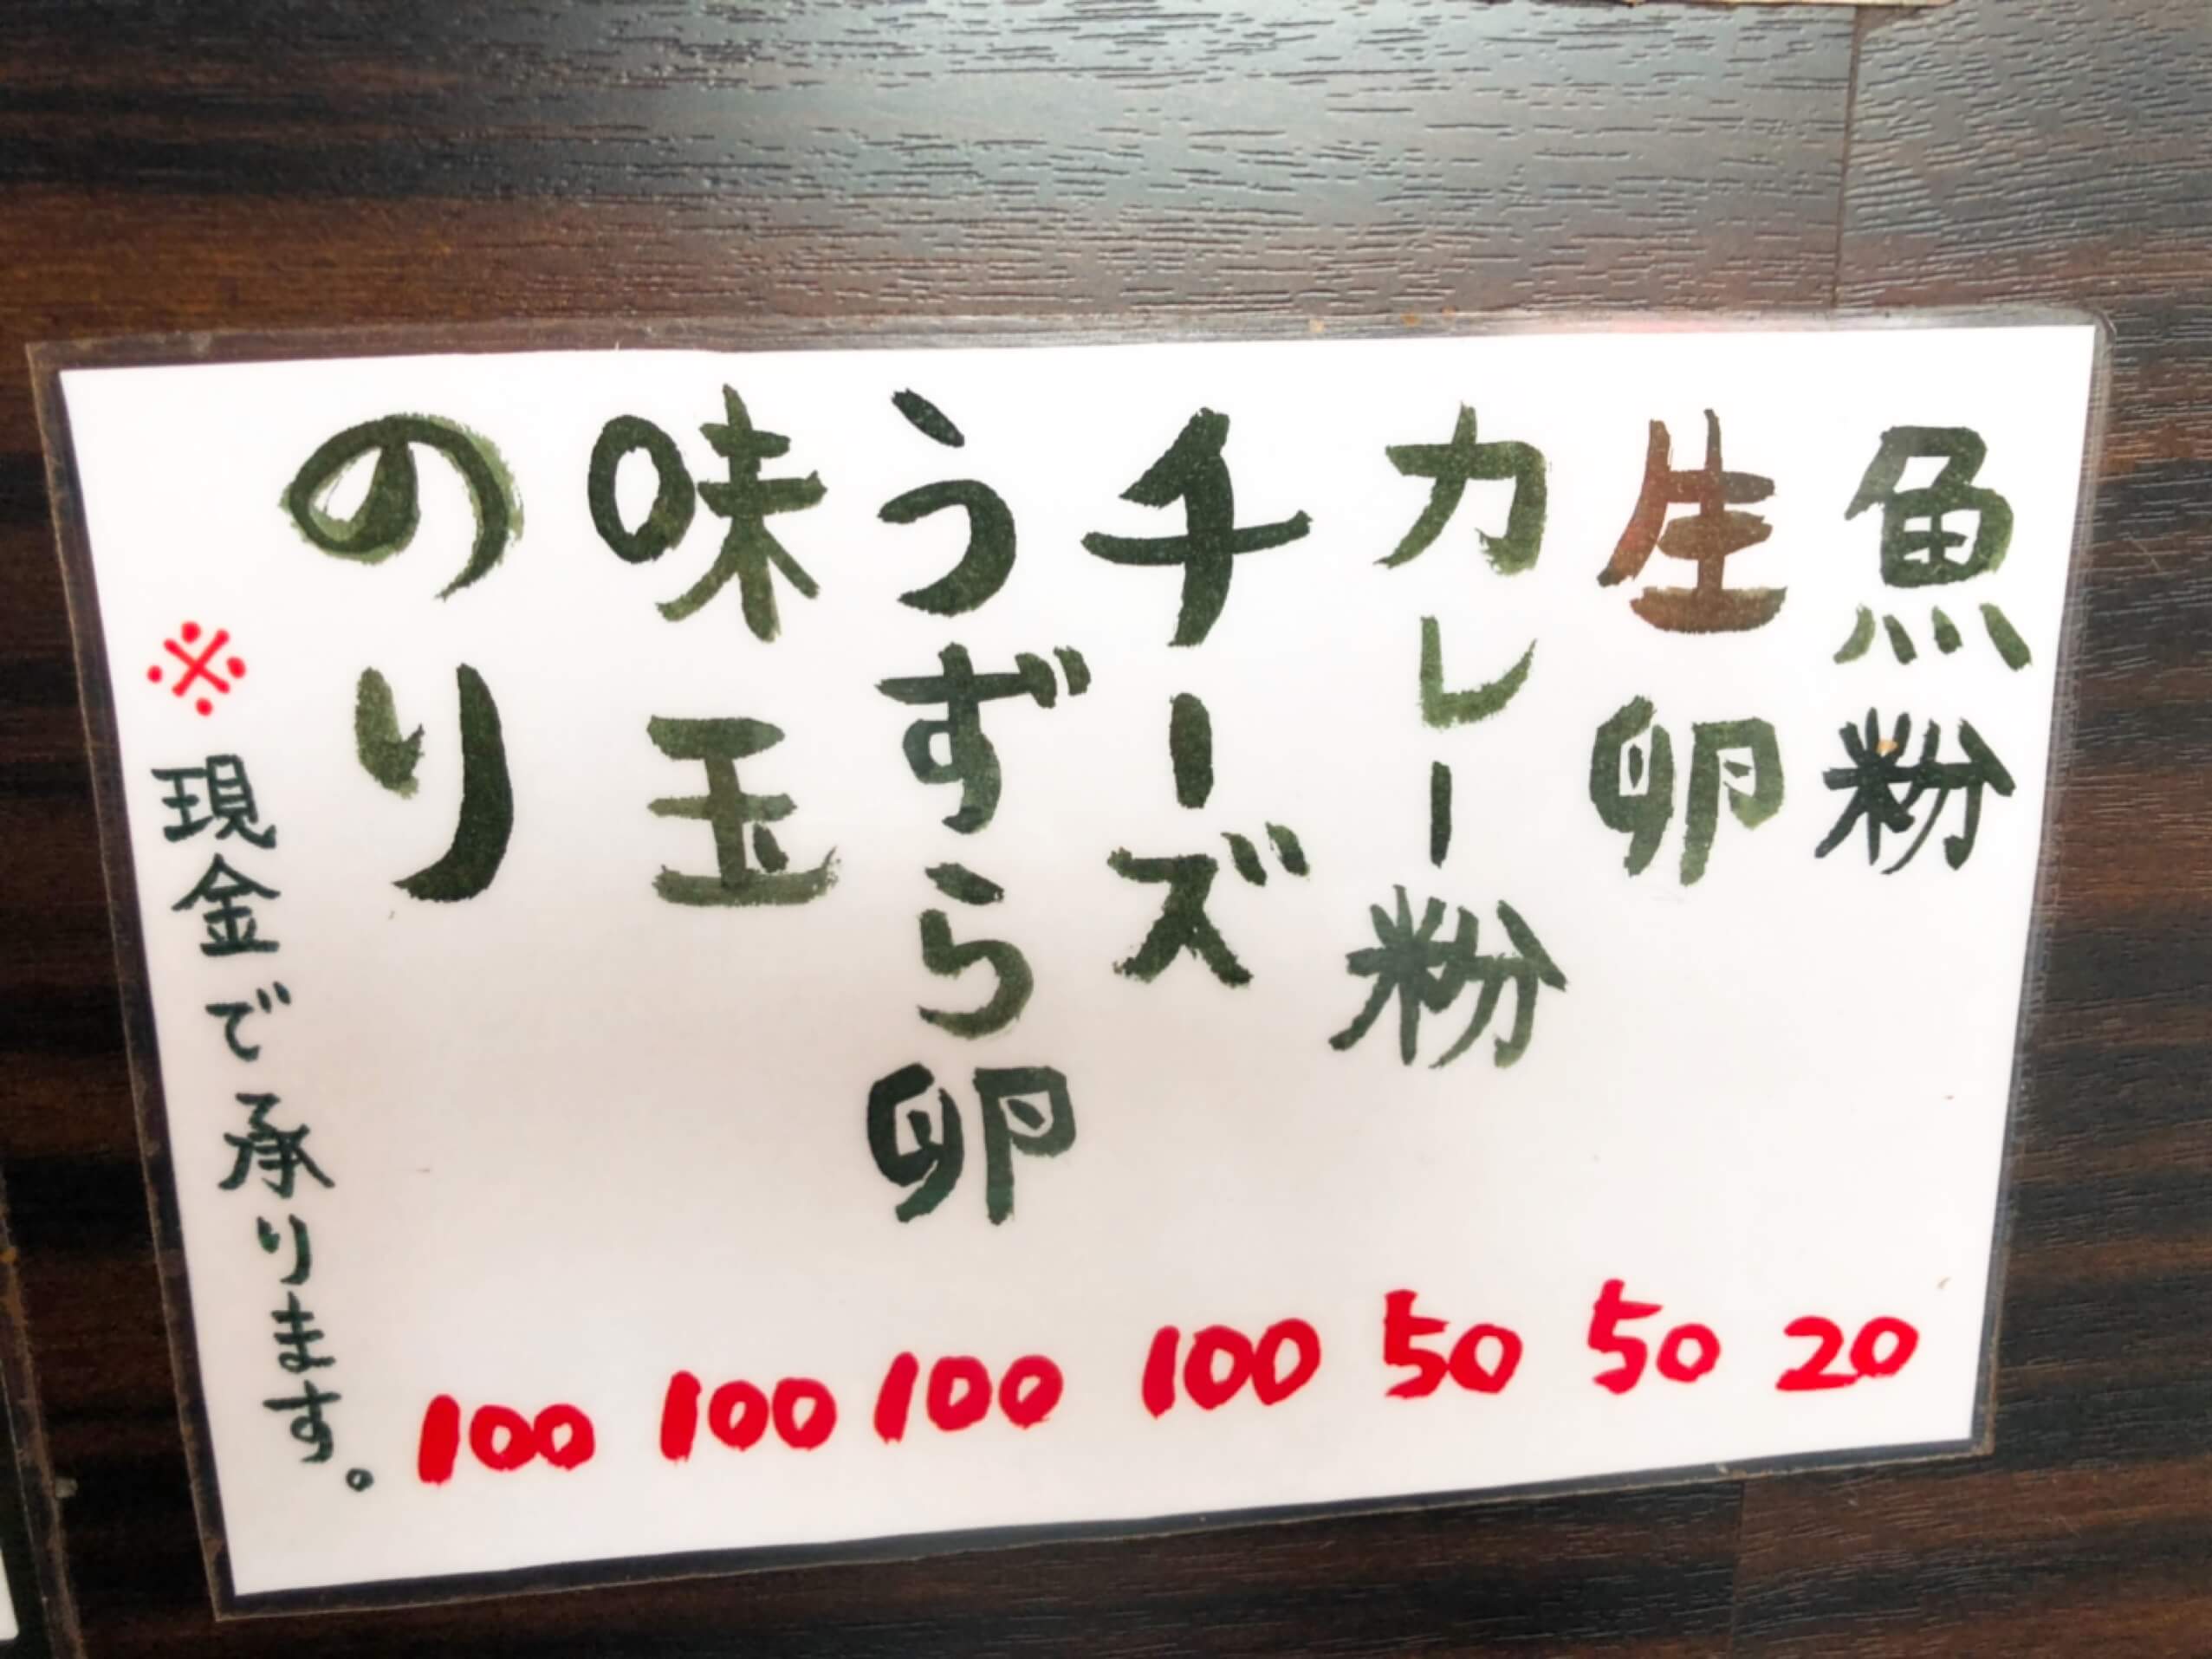 魚粉 20
生卵 50
カレー粉 50
チーズ 100
うずら卵 100
味玉 100
のり 100
※現金で承ります。